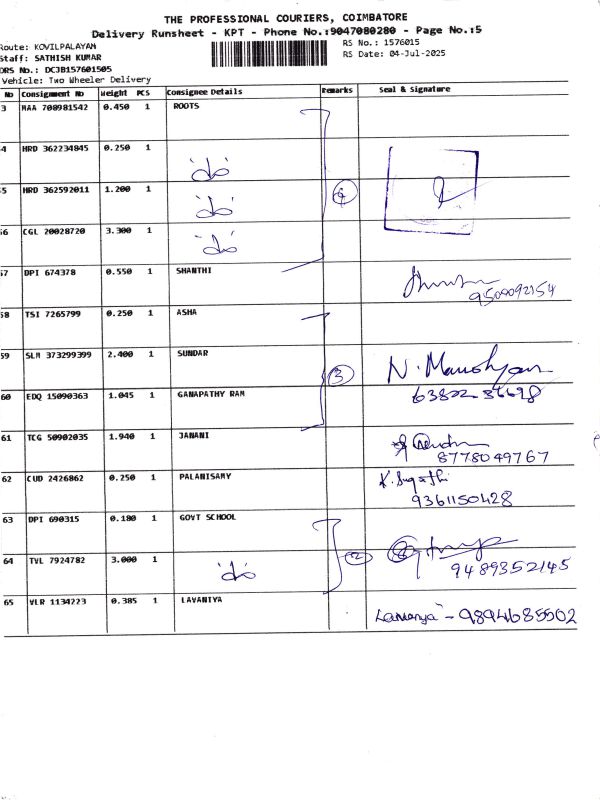 THE PROFESSIONAL COURIERS, COIMBATORE
Delivery Runsheet - KPT - Phone No.:9047080280 - Page No.:5
Route: KOVILPALAYAN
RS No.: 1576015
Staff: SATHISH KUMAR
RS Date: 04-Jul-2025
DRS No.: DCJB157601505
Vehicle: Two Wheeler Delivery
No Consignment No Weight PCS Consignee Details Remarks Seal & Signature
3 MAA 708981542 0.450 1 ROOTS
4 HRD 362234845 0.250 1 "do"
5 HRD 362592011 1.200 1 "do" 4
56 CGL 20028720 3.300 1 "do"
57 DPI 674378 0.550 1 SHANTHI
9500092154
58 TSI 7265799 0.250 1 ASHA
59 SLM 373299399 2.400 1 SUNDAR 3
60 EDQ 15090363 1.045 1 GANAPATHY RAM
61 TCG 50902035 1.940 1 JANANI
8778049767
62 CUD 2426862 0.250 1 PALANISAMY
9361150428
63 DPI 690315 0.180 1 GOVT SCHOOL
64 TVL 7924782 3.000 1 "do" 2 9489352145
65 VLR 1134223 0.385 1 LAVANIYA Lavanya - 9894685502